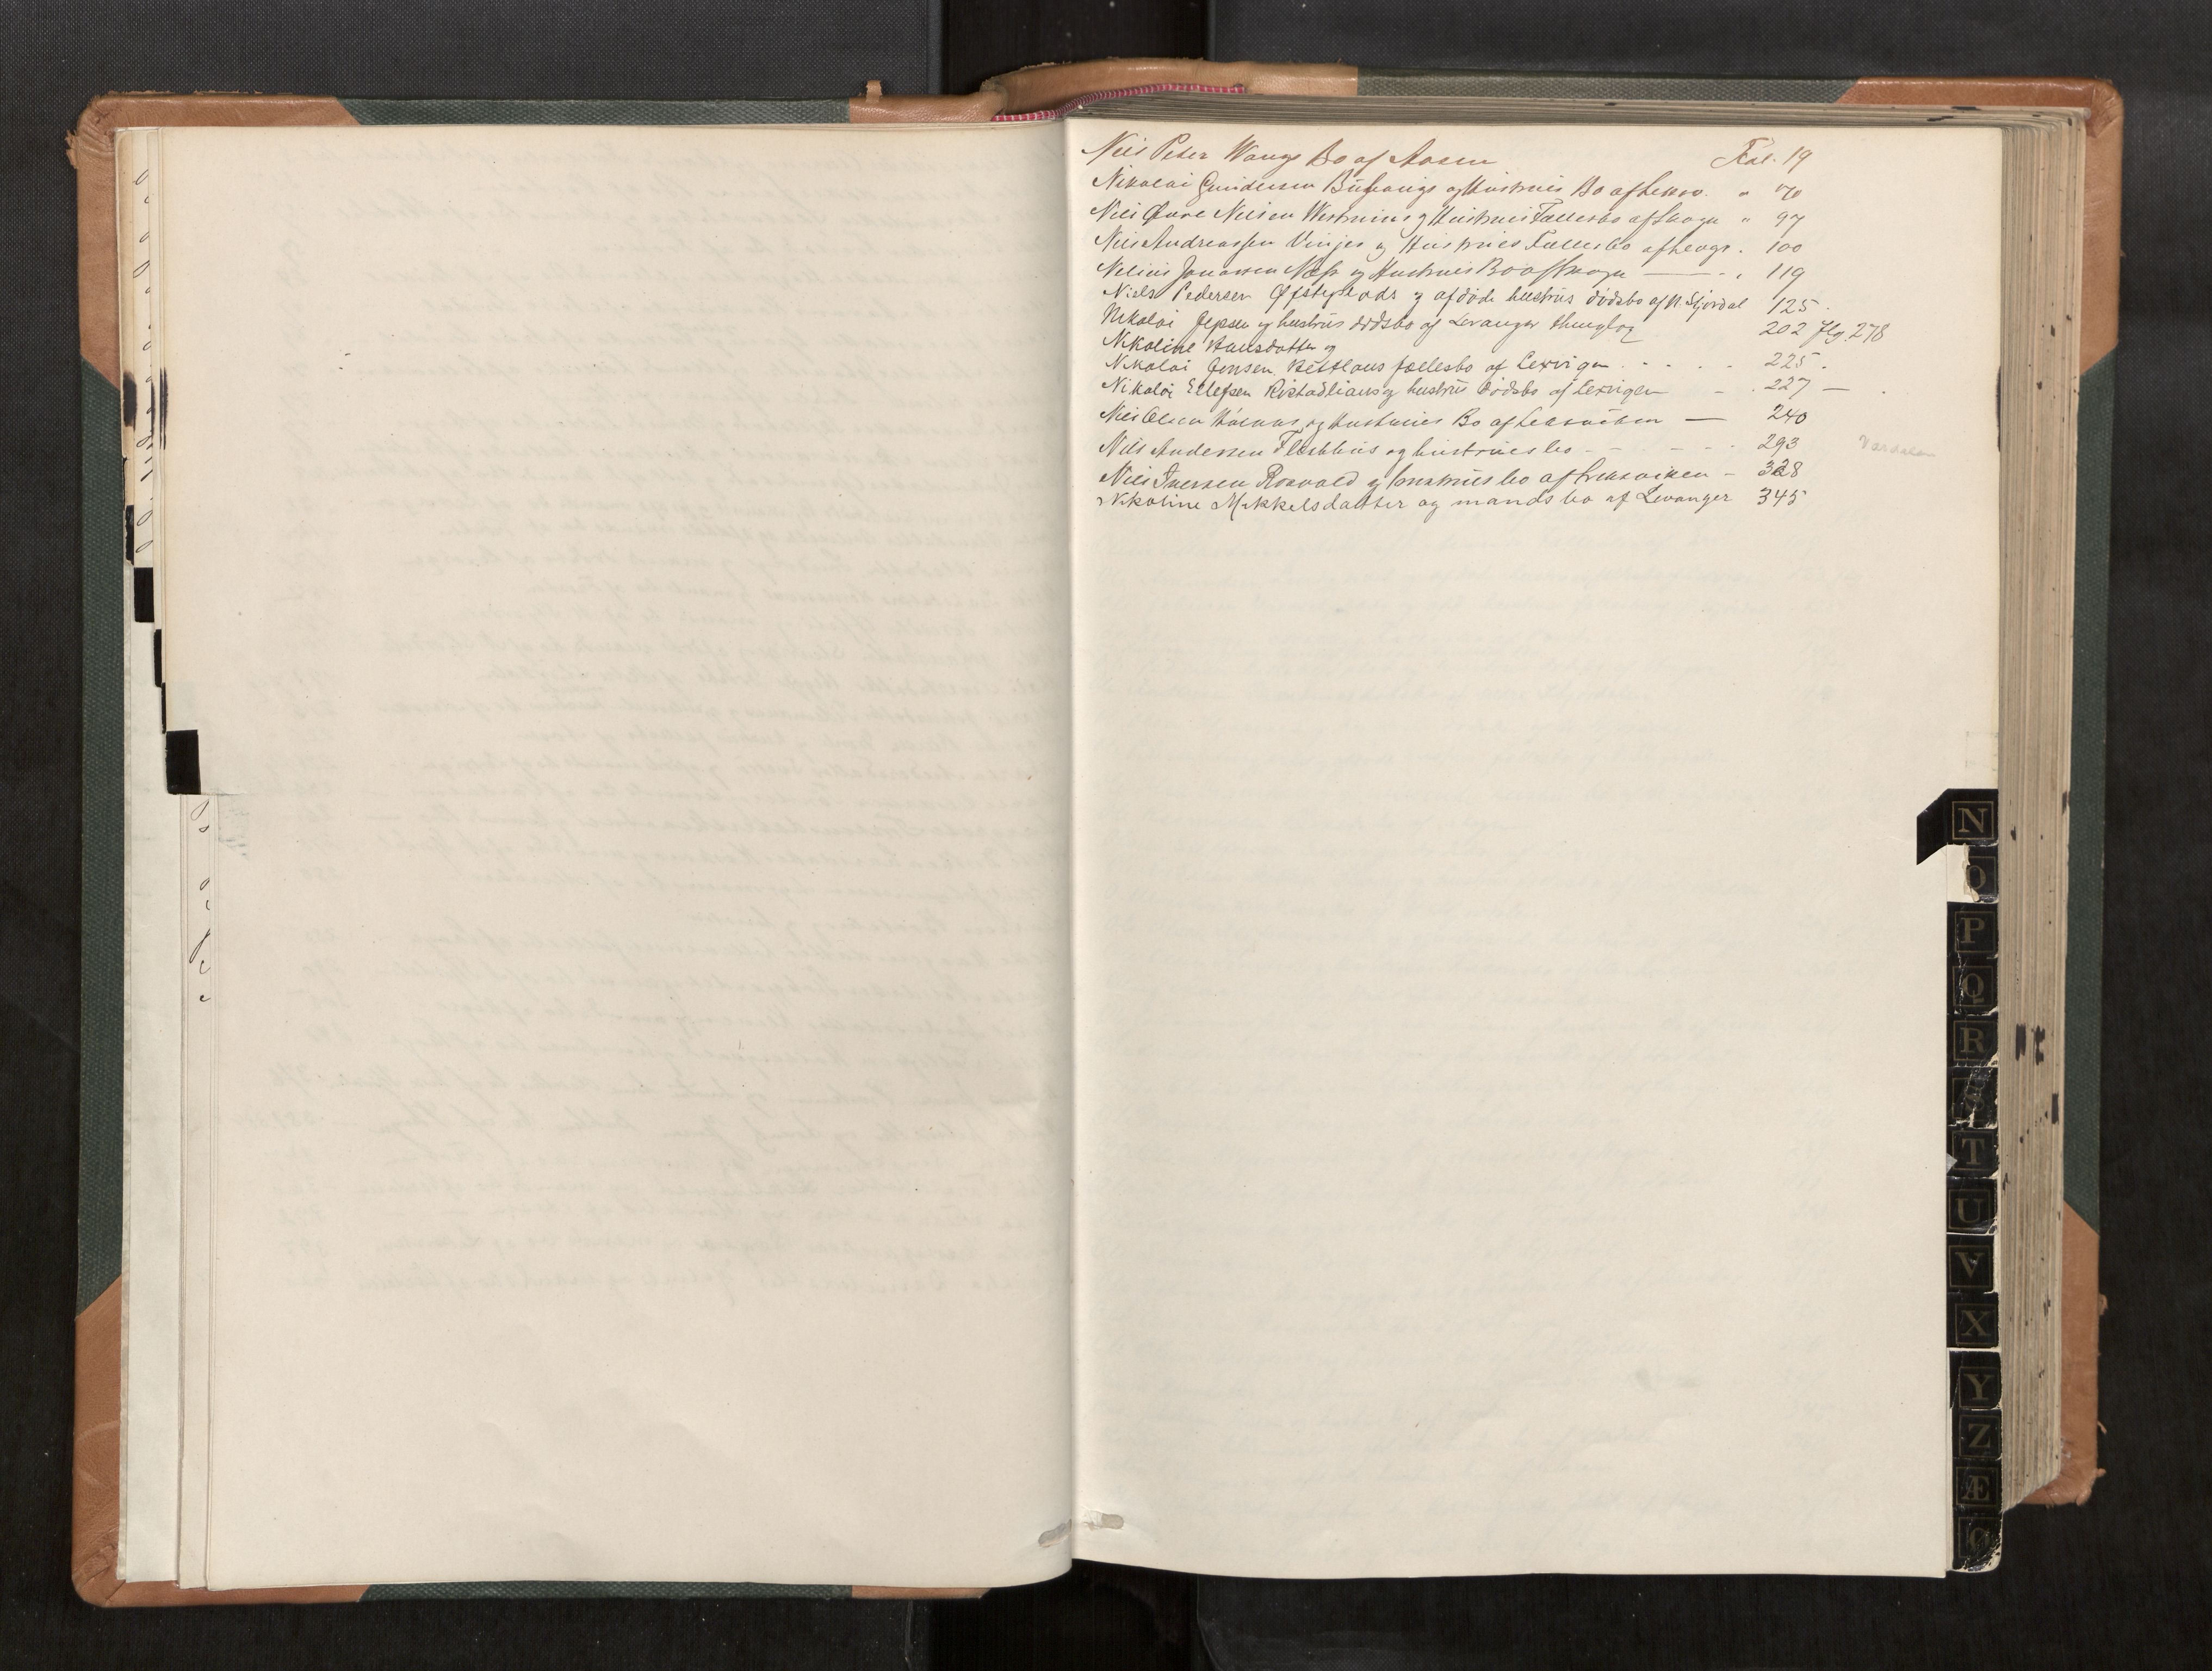 Niels Peter Wangs Bo af Aasen Fol. 19
Nikolai Gundersen og Hustrues Bo af Leksv. " 70
Nils Nilsen og Hustrues Fællesbo af Skogn " 97
Nils Andreassen Vinjes og Hustrues Fællesbo af Levgr. 100
Nelius Jonassen Næss og Hustrues Bo af Skogn — " 119
Niels Pedersen og afdøde hustrus dødsbo af N. Stjørdal 125.
Nikolai Jepsen og hustrus dødsbo af Levanger thinglag 202 flg. 278
Nikoline Hansdatter og
Nikolai Jensen fællesbo af Lexvigen . . . . . 225.
Nikolai Ellefsen Ristadlians og hustrus dødsbo af Lexvigen - . 227 —
Nils Olsen og Hustrues Bo af Leksviken — 240
Nils Andersen Fleskhus og hustrues bo - - - - - 293 Værdalen
Nils Iversen Rosvold og hustrues bo af Leksviken - 328
Nikoline Mikkelsdatter og mands bo af Levanger 345
N
O
P
Q
R
S
T
U
V
X
Y
Z
Æ
Ø